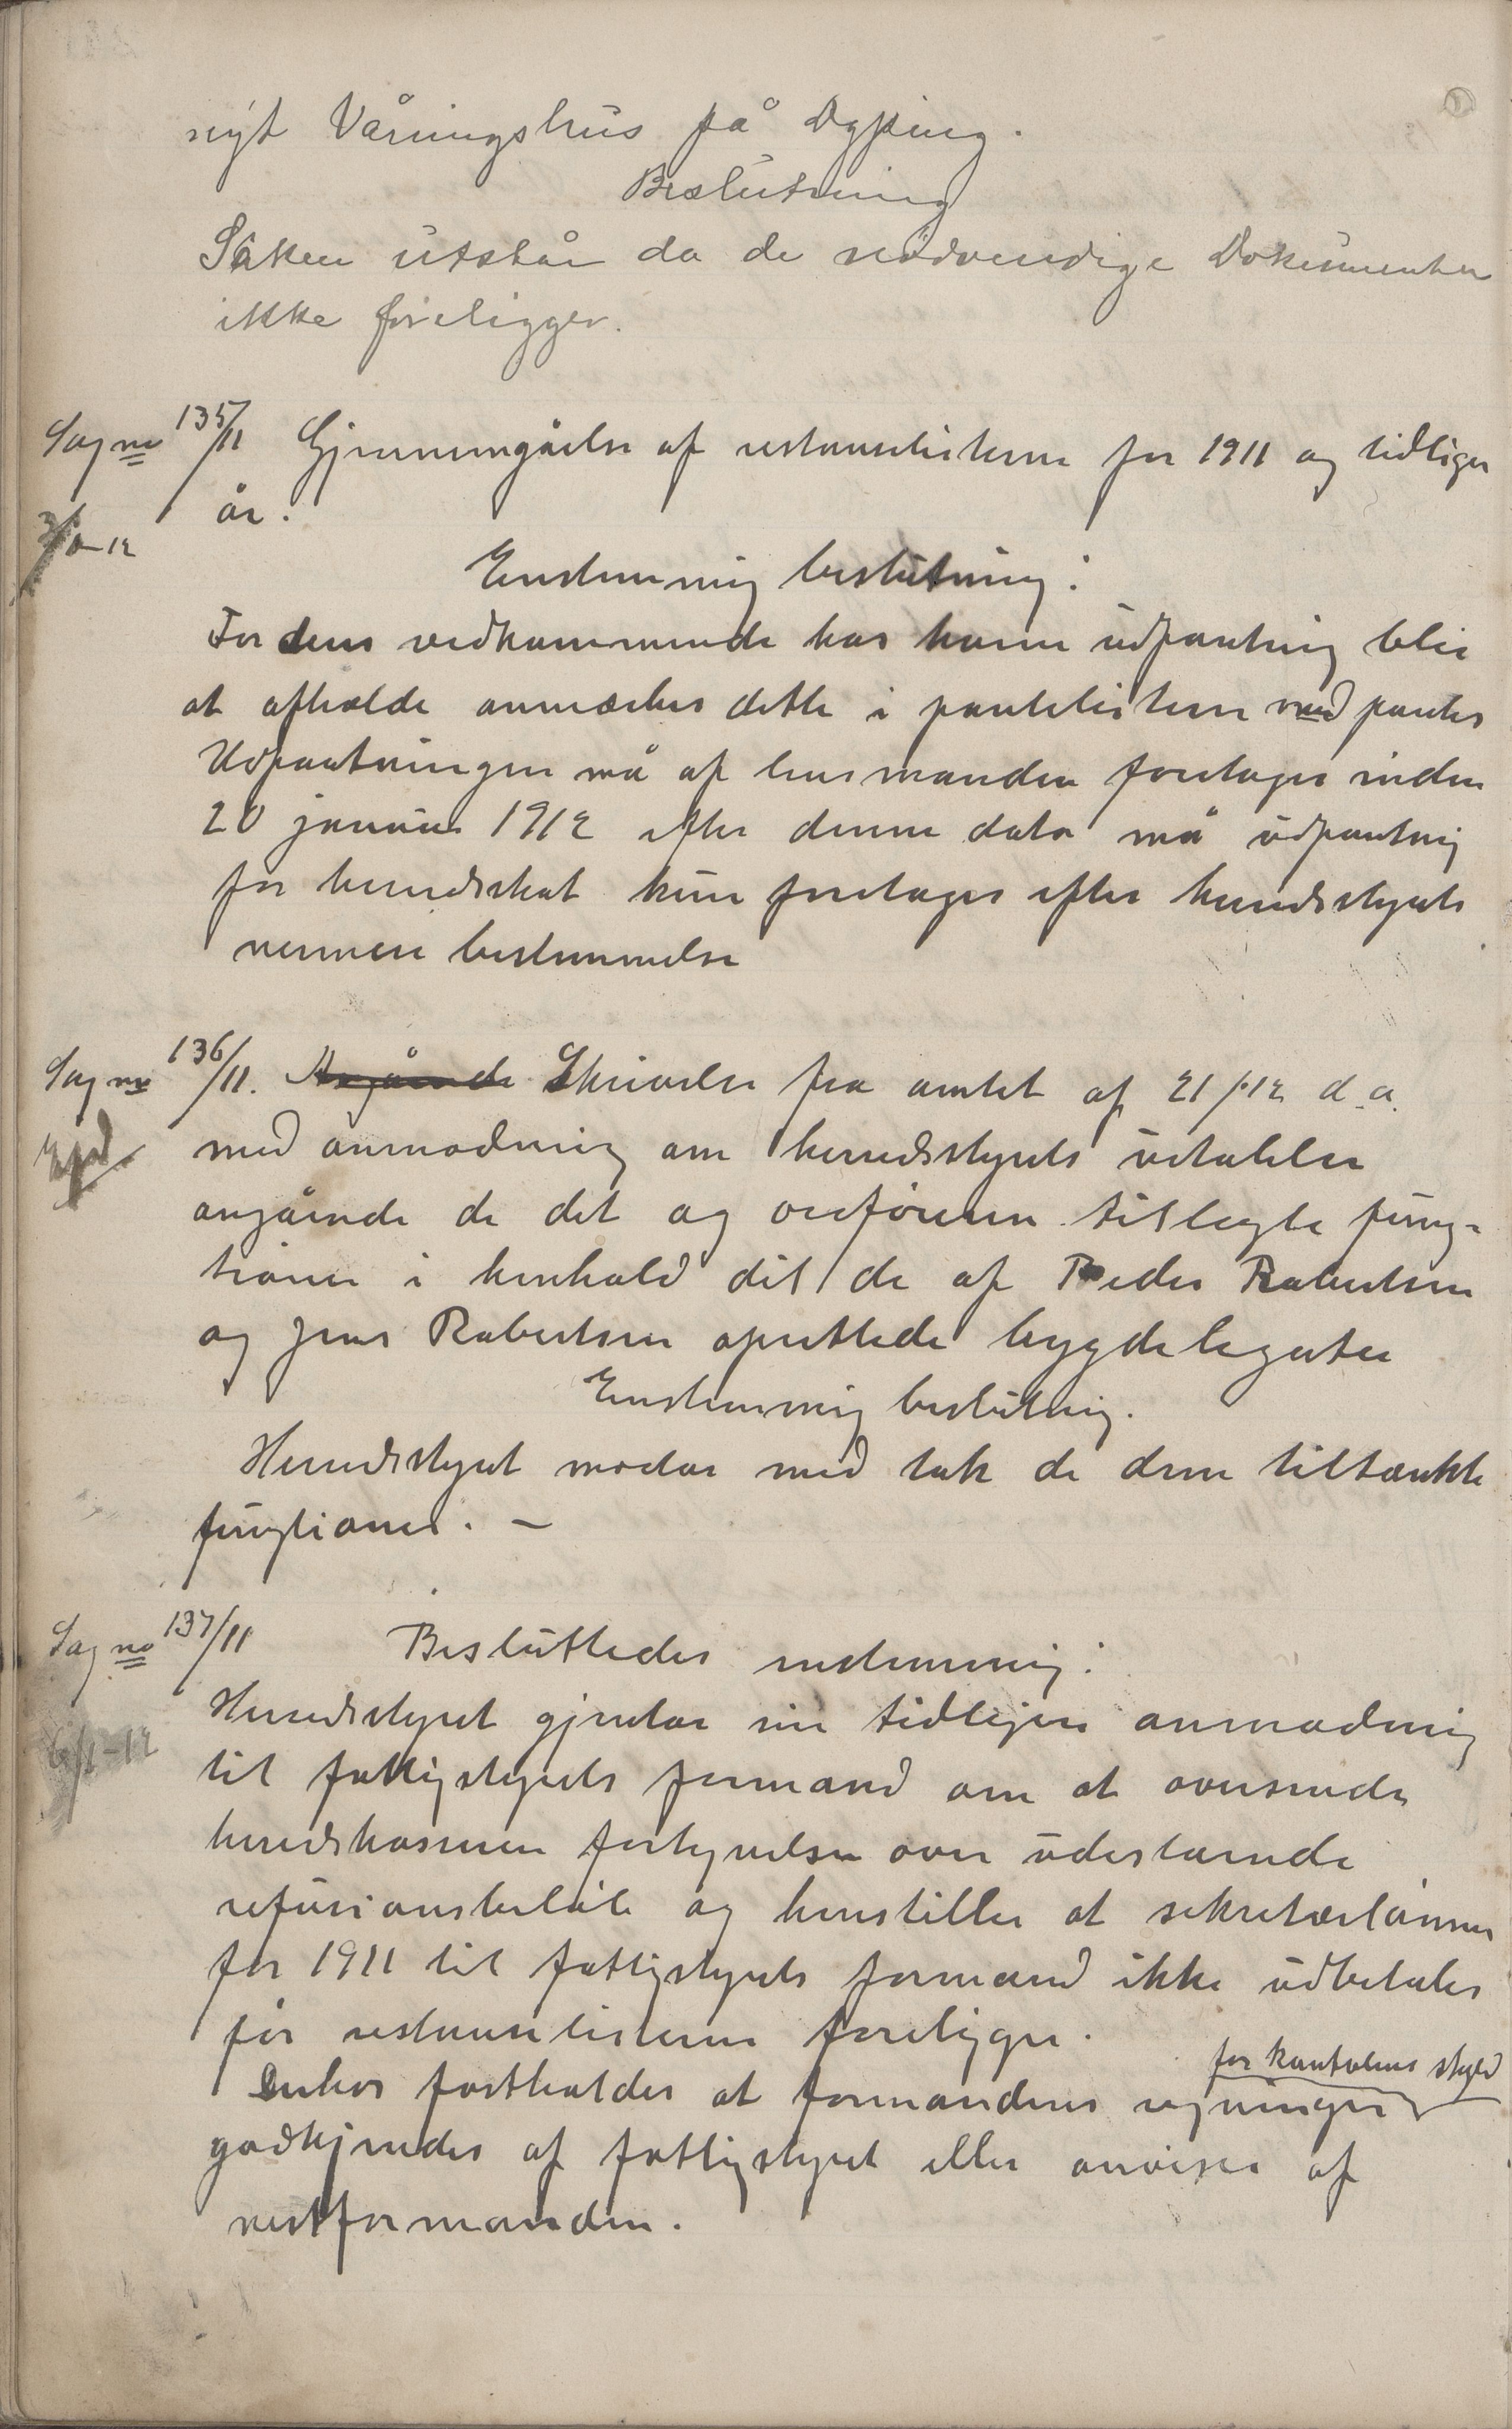 nyt Våningshus på Dyping.
Beslutning
Saken utstår da de nødvendige Dokumenter
ikke foreligger.
Sag no 135/11 Gjennemgåelse af restanselisterne for 1911 og tidliger
år.
Enstemmig beslutning:
For dem vedkommende hos hvem udpantning blir
at afholde anmærkes dette i pantelisterne med pantes
Udpantningen må af lensmanden foretages inden
20 januar 1912 efter denne dato må udpantnig
for herredsskat kun foretages efter herredsstyrets
nermere bestemmelse
Sag no 136/11. Angående Skrivelse fra amtet af 21/12 d.a.
Exp.
med anmodning om herredsstyrets udtalelse
angående de det og ordføreren tillagte fung-
tioner i henhold til de af Peder Robertsen
og Jens Robertsen oprettede bygdelegater
Enstemmig beslutnig.
Herredsstyret modtar med tak de dem tiltænkte
fungtioner. –
Sag no 137/11 Besluttedes enstemmig:
Herredsstyret gjentar sin tidligere anmodnig
til fattigstyrets formand om at oversende
herredskassereren fortegnelse over udestaaende
refusionsbeløb og henstiller at sekretærlønnen
for 1911 til fattigstyrets formand ikke udbetales
før restanselisterne foreligger.
for kontrolens skyld
Enhver fastholdes at formandens regninger
godkjendes af fattigstyret eller anvises af
nestformanden.